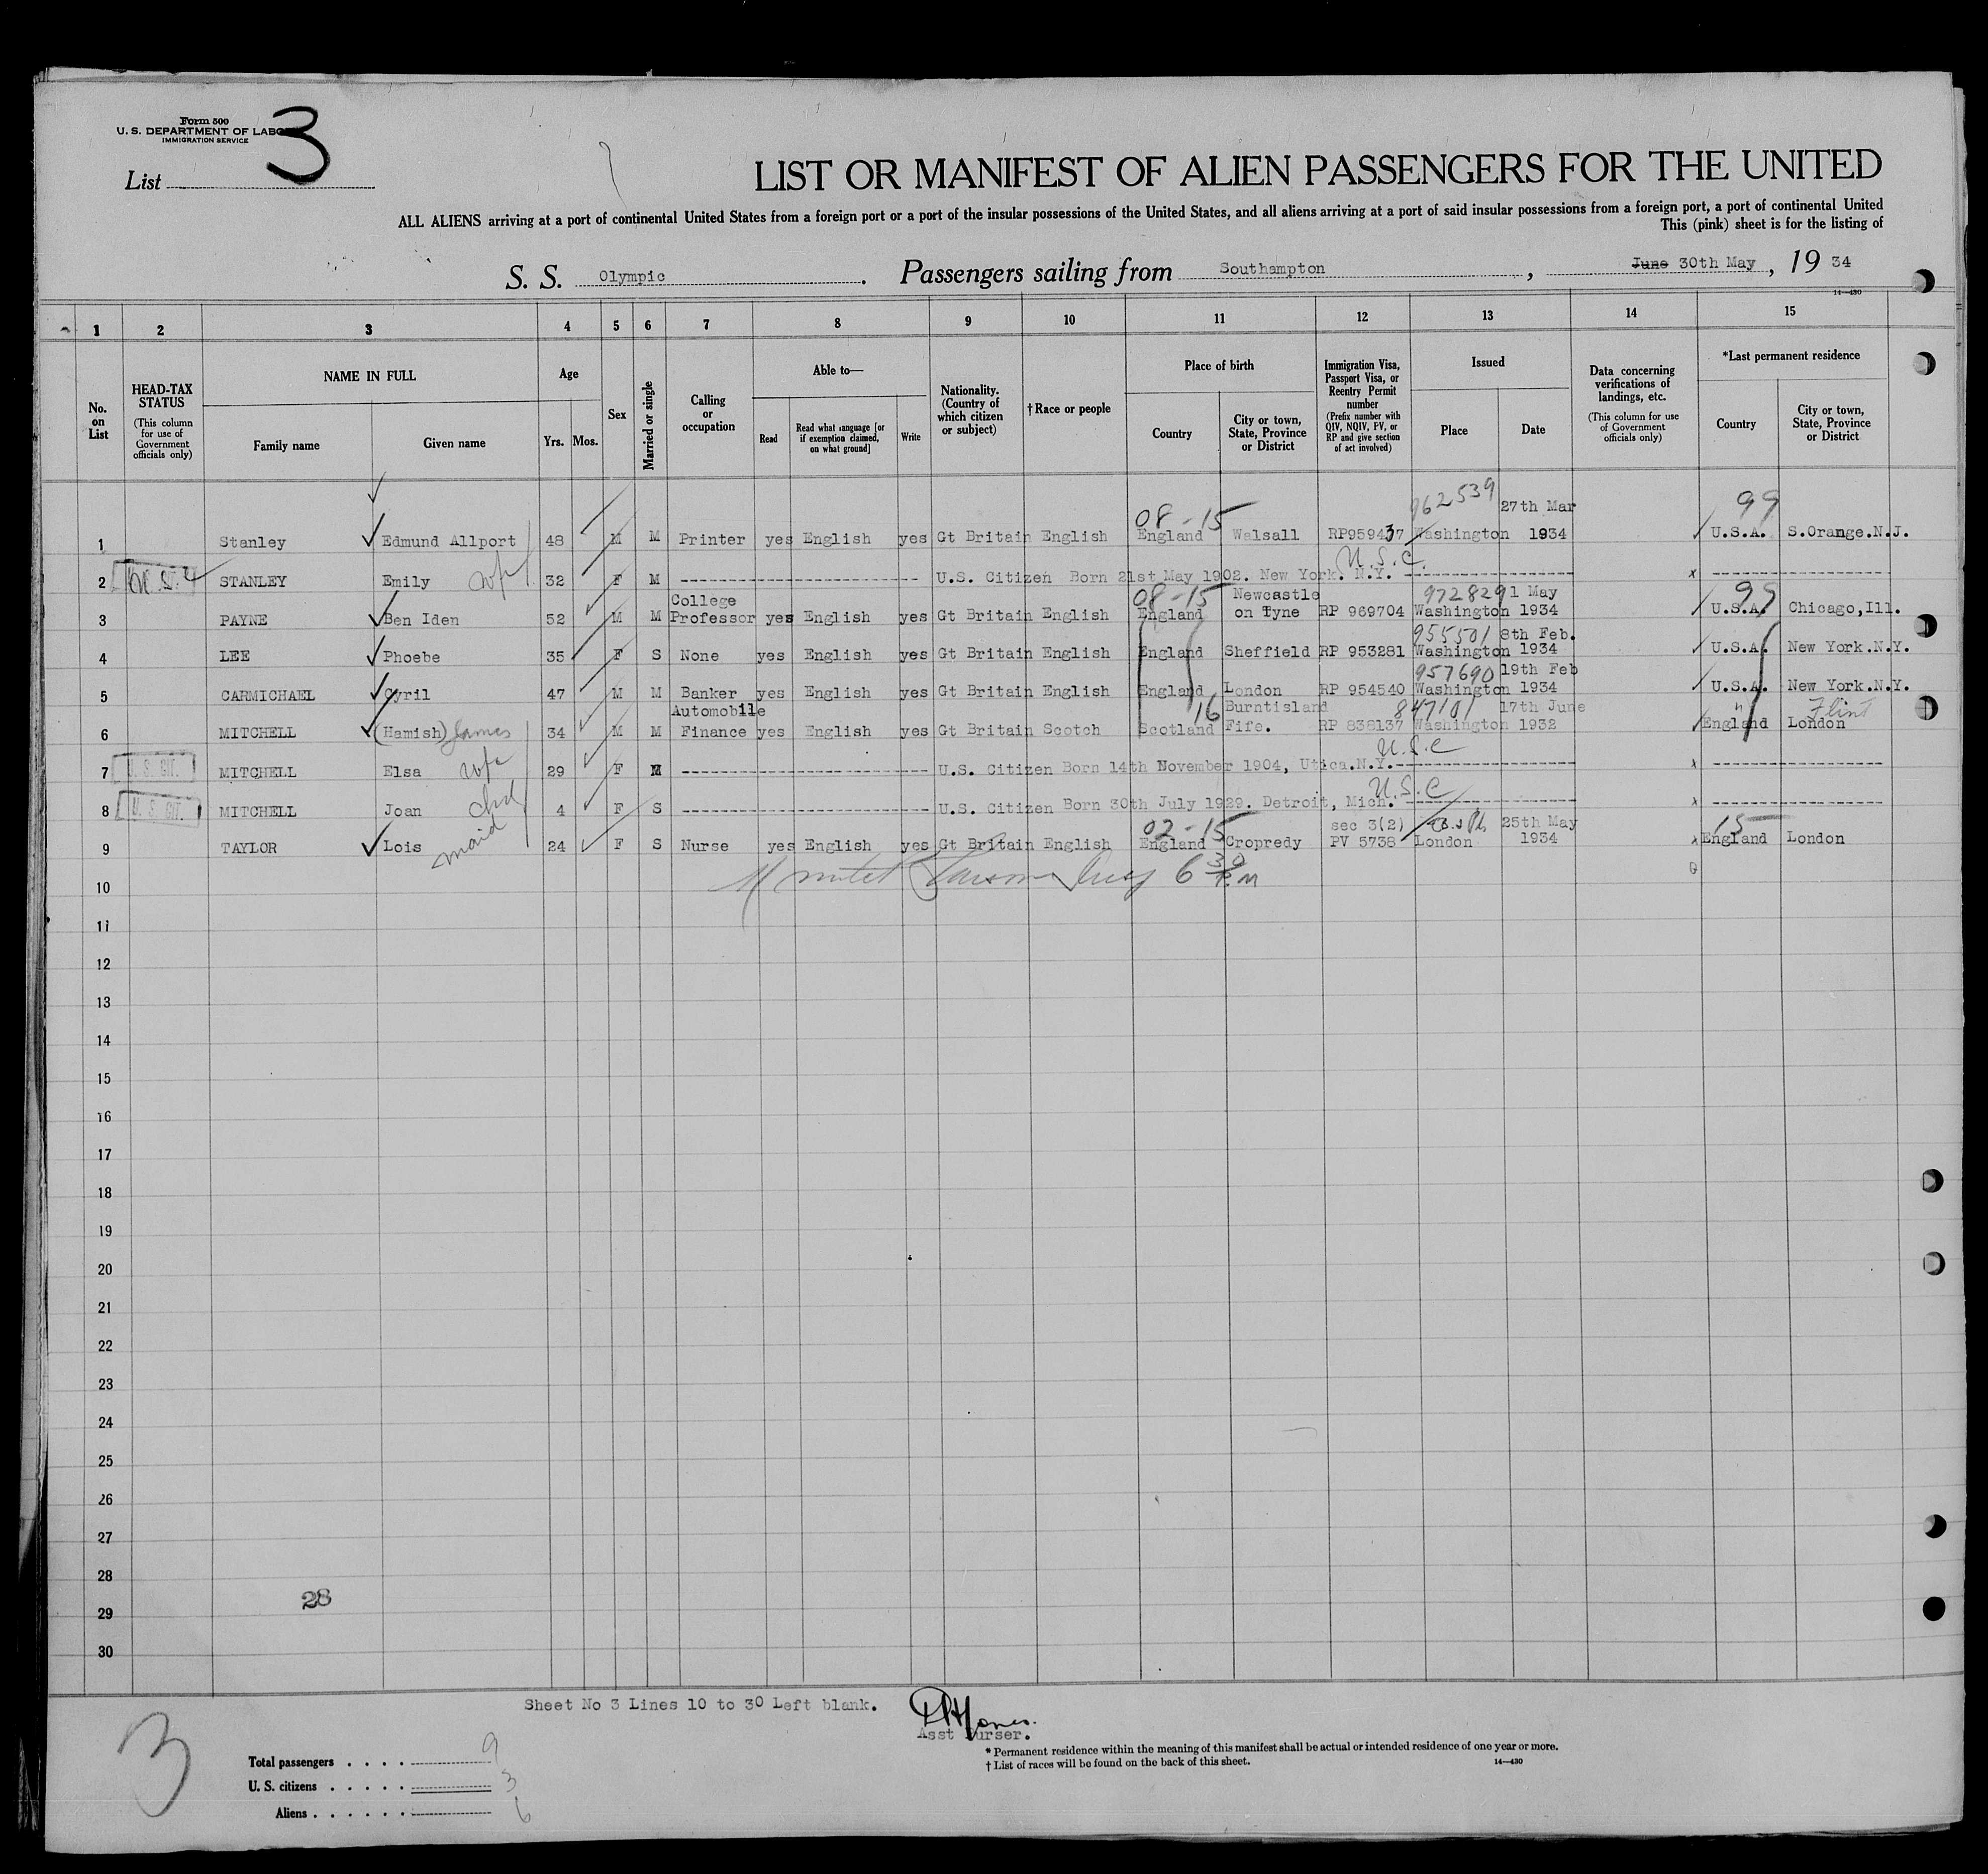 Form 500
U. S. DEPARTMENT OF LABOR
IMMIGRATION SERVICE
3
List
LIST OR MANIFEST OF ALIEN PASSENGERS FOR THE UNITED
ALL ALIENS arriving at a port of continental United States from a foreign port or a port of the insular possessions of the United States, and all aliens arriving at a port of said insular possessions from a foreign port, a port of continental United
This (pink) sheet is for the listing of
S. S. Olympic. Passengers sailing from Southampton, June 30th May, 19 34
14—430
1 2 3 4 5 6 7 8 9 10 11 12 13 14 15
No. on List
HEAD-TAX STATUS (This column for use of Government officials only)
NAME IN FULL
Family name Given name
Age
Yrs. Mos.
Sex
Married or single
Calling or occupation
Able to—
Read Read what language [or if exemption claimed, on what ground] Write
Nationality. (Country of which citizen or subject)
† Race or people
Place of birth
Country City or town, State, Province or District
Immigration Visa, Passport Visa, or Reentry Permit number (Prefix number with QIV, NQIV, PV, or RP and give section of act involved)
Issued
Place Date
Data concerning verifications of landings, etc. (This column for use of Government officials only)
*Last permanent residence
Country City or town, State, Province or District
08-15 962539 27th Mar 99
1 Stanley Edmund Allport 48 M M Printer yes English yes Gt Britain English England Walsall RP959437 Washington 1934 U.S.A. S.Orange.N.J.
U.S.C.
2 STANLEY Emily wf 32 F M U.S. Citizen Born 21st May 1902. New York. N.Y.
College 08-15 Newcastle 972829 1 May 99
3 PAYNE Ben Iden 52 M M Professor yes English yes Gt Britain English England on Tyne RP 969704 Washington 1934 U.S.A. Chicago,Ill.
955501 8th Feb.
4 LEE Phoebe 35 F S None yes English yes Gt Britain English England Sheffield RP 953281 Washington 1934 U.S.A. New York.N.Y.
957690 19th Feb
5 CARMICHAEL Cyril 47 M M Banker yes English yes Gt Britain English England London RP 954540 Washington 1934 U.S.A. New York.N.Y.
Automobile 16 Burntisland 847101 17th June " Flint
6 MITCHELL (Hamish) James 34 M M Finance yes English yes Gt Britain Scotch Scotland Fife. RP 838137 Washington 1932 England London
U.S.C
7 U. S. CIT. MITCHELL Elsa wfe 29 F M U.S. Citizen Born 14th November 1904, Utica.N.Y.
U.S.C
8 U. S. CIT. MITCHELL Joan chd 4 F S U.S. Citizen Born 30th July 1929. Detroit, Mich.
02-15 sec 3(2) 25th May 15
9 TAYLOR Lois maid 24 F S Nurse yes English yes Gt Britain English England Cropredy PV 5738 London 1934 England London
10
6 30 P.M
11
12
13
14
15
16
17
18
19
20
21
22
23
24
25
26
27
28
28
29
30
Sheet No 3 Lines 10 to 30 Left blank.
Asst Purser.
3
Total passengers . . . . 9
U. S. citizens . . . . . 3
Aliens . . . . . . 6
* Permanent residence within the meaning of this manifest shall be actual or intended residence of one year or more.
† List of races will be found on the back of this sheet.
14—430